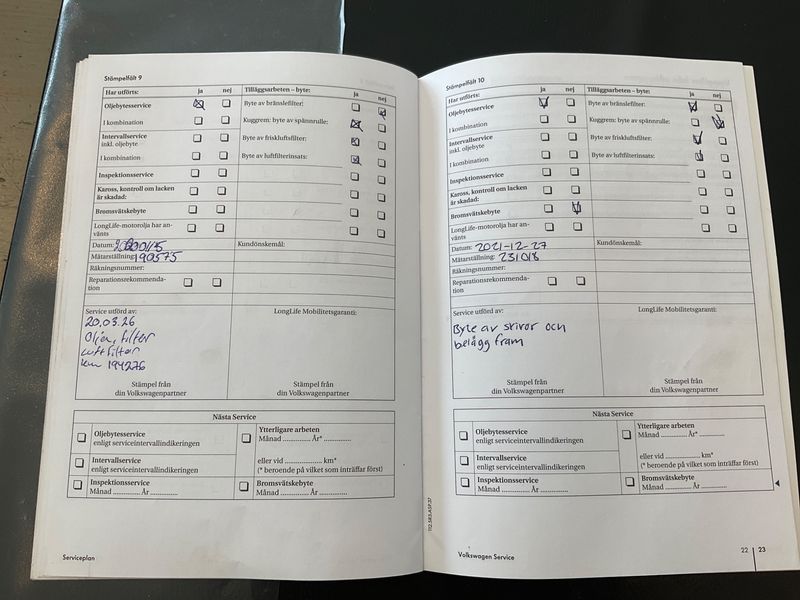 Stämpelfält 9
Har utförts: ja nej
Tilläggsarbeten – byte: ja nej
Oljebytesservice
Byte av bränslefilter:
I kombination
Kuggrem: byte av spännrulle:
Intervallservice
inkl. oljebyte
Byte av friskluftsfilter:
I kombination
Byte av luftfilterinsats:
Inspektionsservice
Kaross, kontroll om lacken
är skadad:
Bromsvätskebyte
LongLife-motorolja har an-
vänts
Datum:
Kundönskemål:
Mätarställning: 190575
Räkningsnummer:
Reparationsrekommenda-
tion
Service utförd av:
20.03.26
Olja, filter
Luftfilter
km 194276
Stämpel från
din Volkswagenpartner
LongLife Mobilitetsgaranti:
Stämpel från
din Volkswagenpartner
Nästa Service
Oljebytesservice
enligt serviceintervallindikeringen
Intervallservice
enligt serviceintervallindikeringen
Inspektionsservice
Månad ............. År .............
Ytterligare arbeten
Månad ............. År* .............
eller vid .................... km*
(* beroende på vilket som inträffar först)
Bromsvätskebyte
Månad ............. År .............
Serviceplan
Stämpelfält 10
Har utförts: ja nej
Tilläggsarbeten – byte: ja nej
Oljebytesservice
Byte av bränslefilter:
I kombination
Kuggrem: byte av spännrulle:
Intervallservice
inkl. oljebyte
Byte av friskluftsfilter:
I kombination
Byte av luftfilterinsats:
Inspektionsservice
Kaross, kontroll om lacken
är skadad:
Bromsvätskebyte
LongLife-motorolja har an-
vänts
Datum: 2021-12-27
Kundönskemål:
Mätarställning: 231018
Räkningsnummer:
Reparationsrekommenda-
tion
Service utförd av:
Byte av skivor och
belägg fram
Stämpel från
din Volkswagenpartner
LongLife Mobilitetsgaranti:
Stämpel från
din Volkswagenpartner
Nästa Service
Oljebytesservice
enligt serviceintervallindikeringen
Intervallservice
enligt serviceintervallindikeringen
Inspektionsservice
Månad ............. År .............
Ytterligare arbeten
Månad ............. År* .............
eller vid .................... km*
(* beroende på vilket som inträffar först)
Bromsvätskebyte
Månad ............. År .............
Volkswagen Service
22 | 23